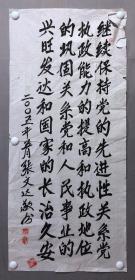 继续保持党的先进性关系党
执政能力的提高和执政地位
的巩固关系党和人民事业的
兴旺发达和国家的长治久安
二〇〇五年